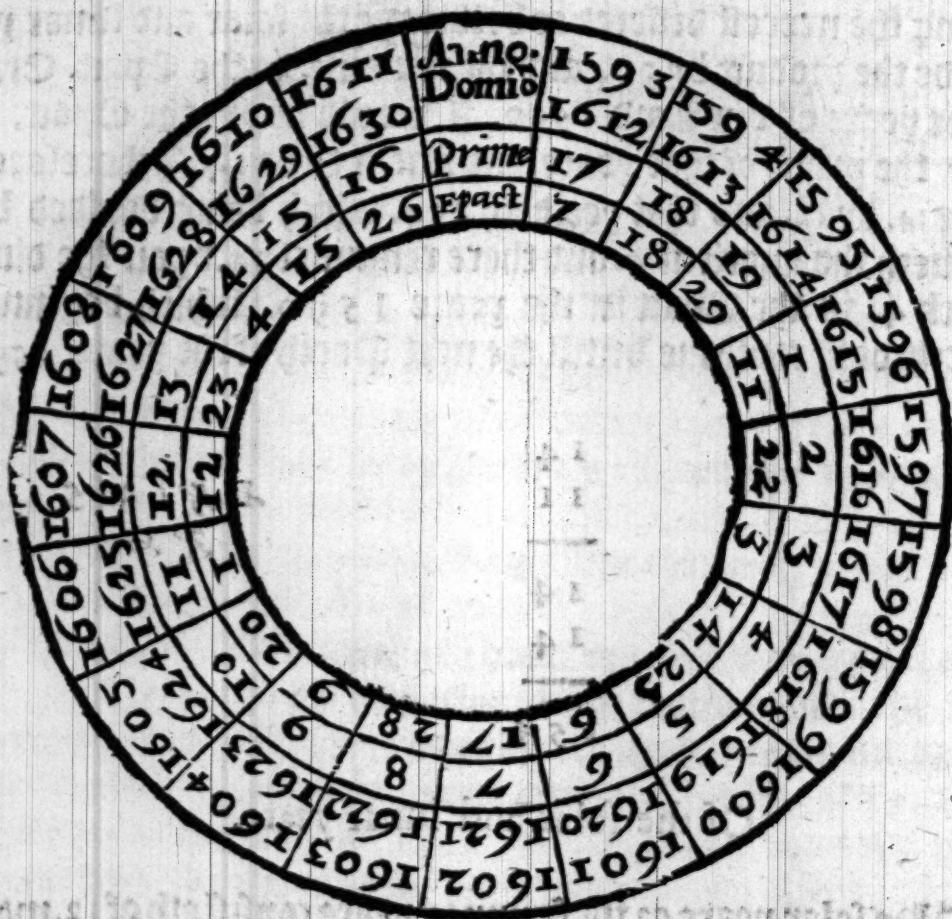 Anno.
Domiō
Prime
Epact
1593
1612
17
7
1594
1613
18
18
1595
1614
19
29
1596
1615
1
11
1597
1616
2
22
1598
1617
3
3
1599
1618
4
14
1600
1619
5
25
1601
1620
6
6
1602
1621
7
17
1603
1622
8
28
1604
1623
9
9
1605
1624
10
20
1606
1625
11
1
1607
1626
12
12
1608
1627
13
23
1609
1628
14
4
1610
1629
15
15
1611
1630
16
26